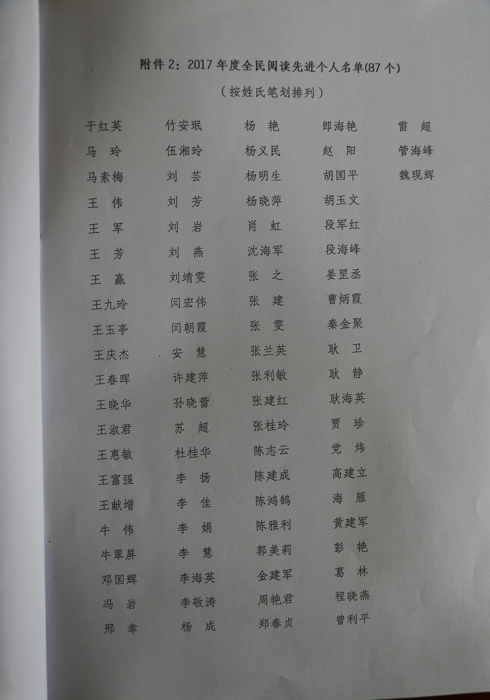 附件2：2017年度全民阅读先进个人名单(87个)
（按姓氏笔划排列）
于红英 竹安珉 杨 艳 郎海艳 雷 超
马 玲 伍湘玲 杨义民 赵 阳 管海峰
马素梅 刘 芸 杨明生 胡国平 魏现辉
王 伟 刘 芳 杨晓萍 胡玉文
王 军 刘 岩 肖 虹 段军红
王 芳 刘 燕 沈海军 段海峰
王 赢 刘靖雯 张 之 姜罡丞
王九玲 闫宏伟 张 建 曹炳霞
王玉亭 闫朝霞 张 雯 秦金聚
王庆杰 安 慧 张兰英 耿 卫
王春晖 许建萍 张利敏 耿 静
王晓华 孙晓蕾 张建红 耿海英
王淑君 苏 超 张桂玲 贾 珍
王惠敏 杜桂华 陈志云 党 炜
王富强 李 扬 陈建成 高建立
王献增 李 佳 陈鸿鹄 海 雁
牛 伟 李 娟 陈雅利 黄建军
牛翠屏 李 慧 郭美莉 彭 艳
邓国辉 李海英 金建军 葛 林
冯 岩 李敬涛 周艳君 程晓燕
邢 幸 杨 成 郑春贞 曾利平